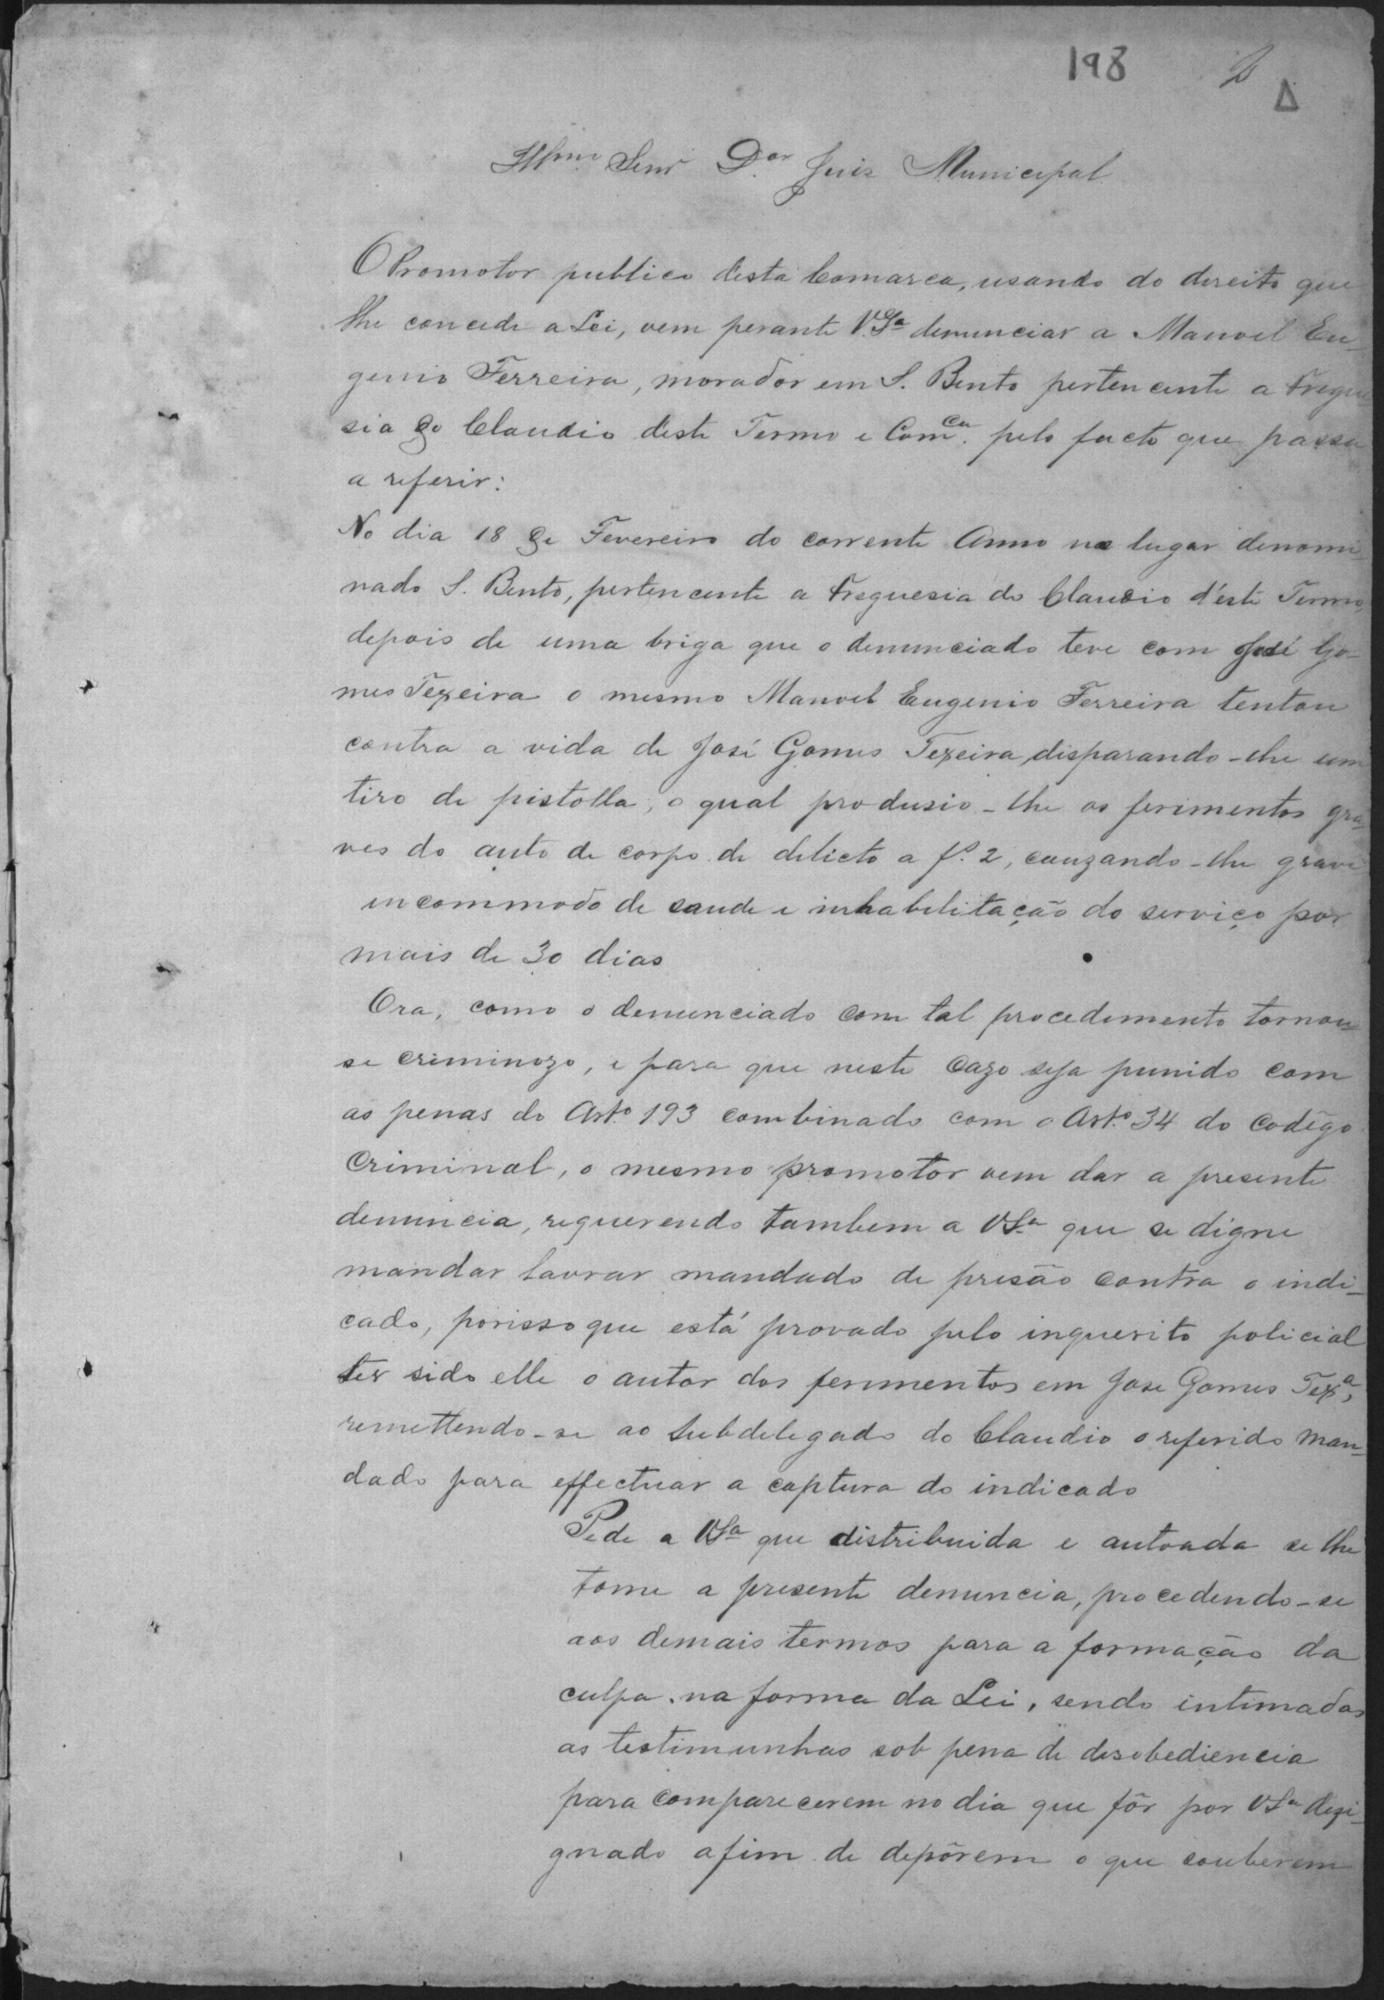 198 2
Illmo. Senr. Dor. Juiz Municipal
O Promotor publico desta Comarca, usando do direito que
lhe concede a Lei, vem perante V.Sa. denunciar a Manoel Eu-
genio Ferreira, morador em S. Bento pertencente a Fregue
sia do Claudio deste Termo e Comca. pelo facto que passa
a referir:
No dia 18 de Fevereiro do corrente Anno no lugar denomi
nado S. Bento, pertencente a Freguesia do Claudio d'éste Termo,
depois de uma briga que o denunciado teve com José Go-
mes Texeira o mesmo Manoel Eugenio Ferreira tentou
contra a vida de José Gomes Texeira, disparando-lhe um
tiro de pistolla, o qual produsio-lhe os ferimentos gra-
ves do auto de corpo de delicto a fs. 2, cauzando-lhe grave
incommodo de saude e inhabilitação do serviço por
mais de 30 dias
Ora, como o denunciado com tal procedimento tornou-
se criminozo, e para que neste cazo seja punido com
as penas do Arto. 193 combinado com o Arto. 34 do codigo
Criminal, o mesmo promotor vem dar a presente
denuncia, requerendo tambem a V.Sa. que se digne
mandar lavrar mandado de prisão contra o indi-
cado, porisso que está provado pelo inquerito policial
ter sido elle o autor dos ferimentos em Jose Gomes Texa.,
remettendo-se ao Subdelegado do Claudio o referido man-
dado para effectuar a captura do indicado
Pede a V.Sa. que distribuida e autoada se lhe
tome a presente denuncia, procedendo-se
aos demais termos para a formação da
culpa, na forma da Lei, sendo intimadas
as testimunhas sob pena de desobediencia
para comparecerem no dia que fôr por V.Sa. dezi-
gnado afim de depôrem o que souberem